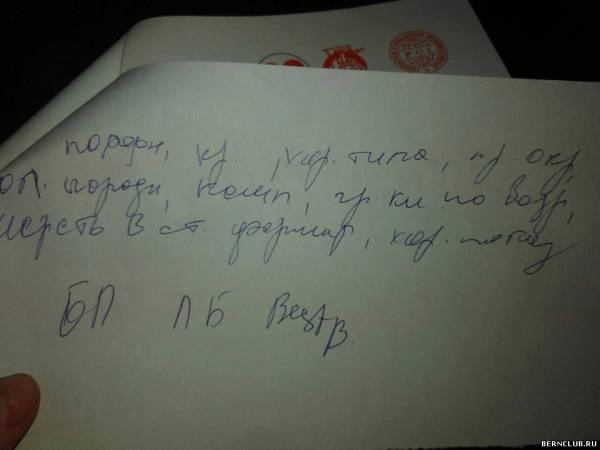 породн, кр., хор. типа, пр. окр,
оп. породн, комп, гр. кл. по возр,
шерсть в ст. формир, хор.
БП ЛБ Вест В.
BERNCLUB.RU